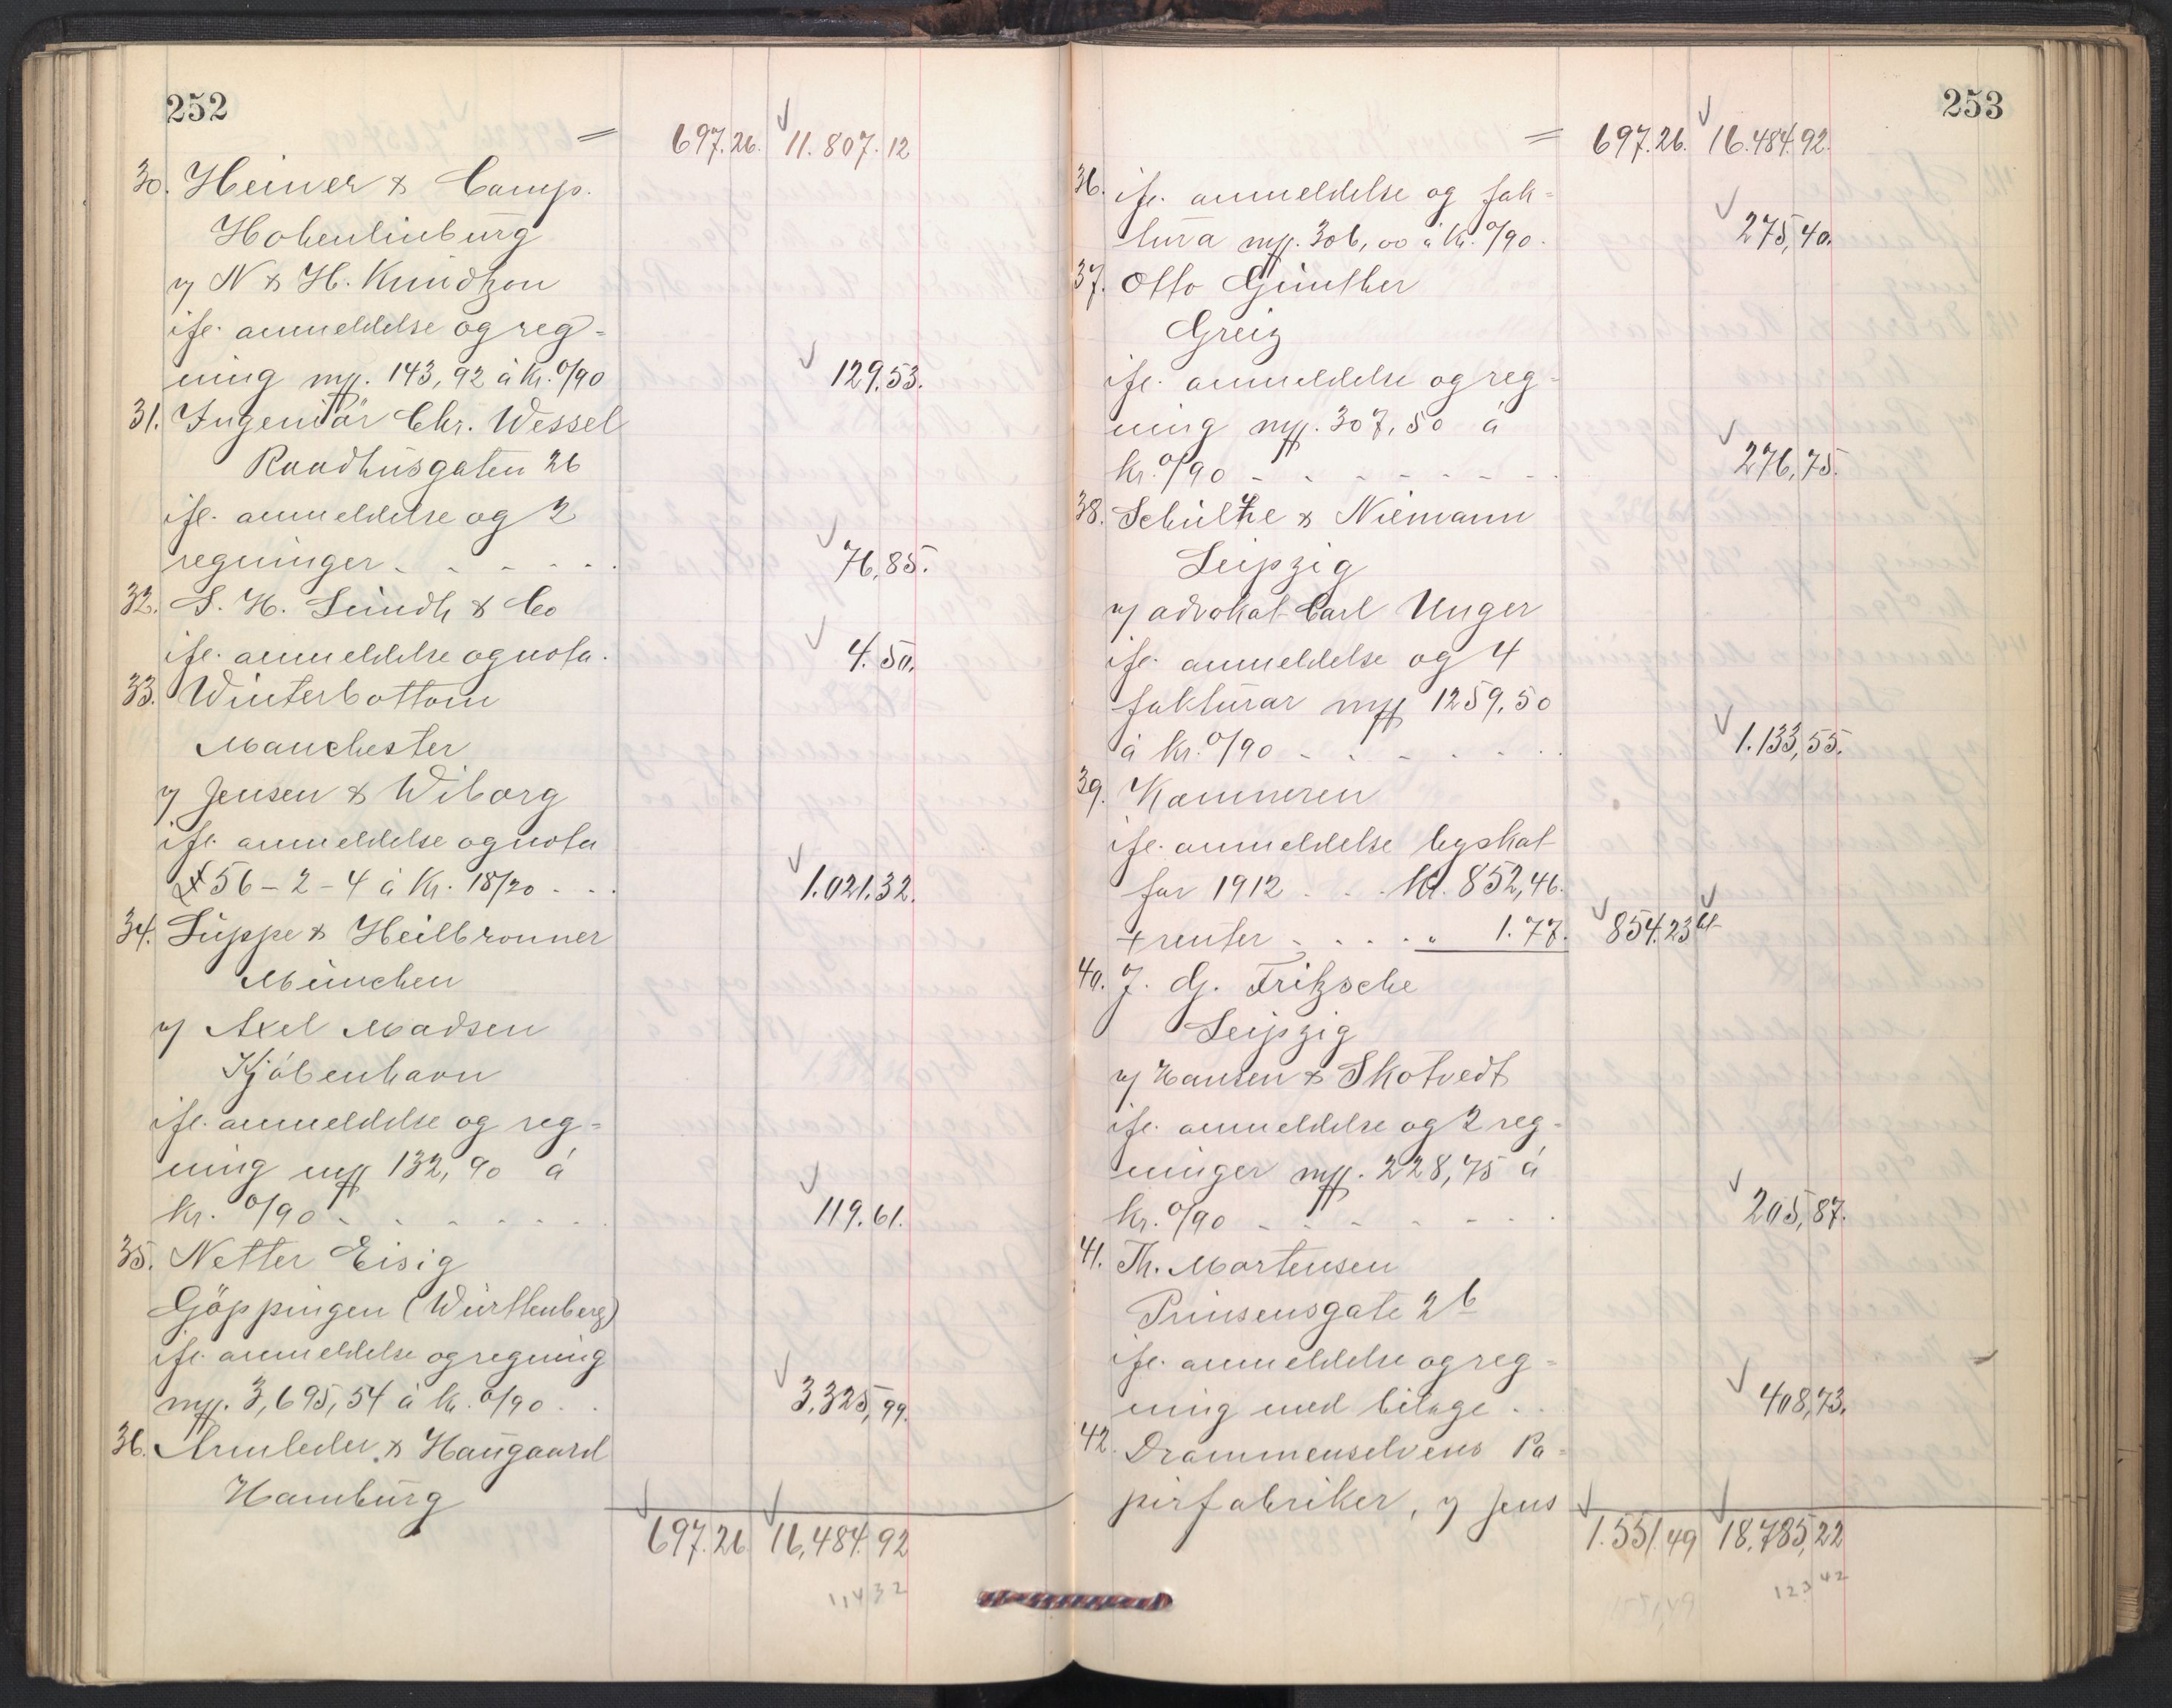 252
= 697.26. 11.807.12
30. Heiner & Comp.
Hohenlinburg
v/ N & H. Knudtzon
ifl. anmeldelse og reg=
ning mp. 143,92 à Kr. 0/90 129.53.
31. Ingeniör Chr. Wessel
Raadhusgaten 26
ifl. anmeldelse og 2
regninger - - - - - 76,85.
32. S. H. Lundh & Co
ifl. anmeldelse og nota. 4.50.
33. Winterbottom
Manchester
v/ Jensen & Wiborg
ifl. anmeldelse og nota
£ 56-2-4 à Kr. 18/20 - - 1.021.32.
34. Luppe & Heilbronner
München
v/ Axel Madsen
Kjöbenhavn
ifl. anmeldelse og reg=
ning mp 132,90 á
kr. 0/90 - - - - - 119.61.
35. Netter Eisig
Göppingen (Würthenberg)
ifl. anmeldelse og regning
mp. 3,695,54 à kr. 0/90 - - 3.325,99.
36. Armleder & Haugaard
Hamburg
697.26 16,484.92
11432
253
= 697.26. 16.484.92.
36. ifl. anmeldelse og fak=
tura mp. 306,00 à kr. 0/90. 275,40.
37. Otto Günther
Greiz
ifl. anmeldelse og reg=
ning mp. 307,50 á
kr. 0/90 - - - - - - 276,75.
38. Schultze & Niemann
Leipzig
v/ advokat Carl Unger
ifl. anmeldelse og 4
fakturar mp 1259,50
à kr. 0/90 - - - - - 1.133,55.
39. Kæmneren
ifl. anmeldelse byskat
for 1912 - - - kr. 852,46.
+ renter - - - - " 1.77. 854.23
40. J. G. Fritzsche
Leipzig
v/ Hansen & Skotvedt
ifl. anmeldelse og 2 reg=
ninger mp. 228,75 á
kr. 0/90 - - - - - - 205,87.
41. Th. Mortensen
Prinsensgate 2b
ifl. anmeldelse og reg=
ning med bilage - - 408,73.
42. Drammenselvens Pa=
pirfabriker, v/ Jens
1.551.49 18.785,22
12342